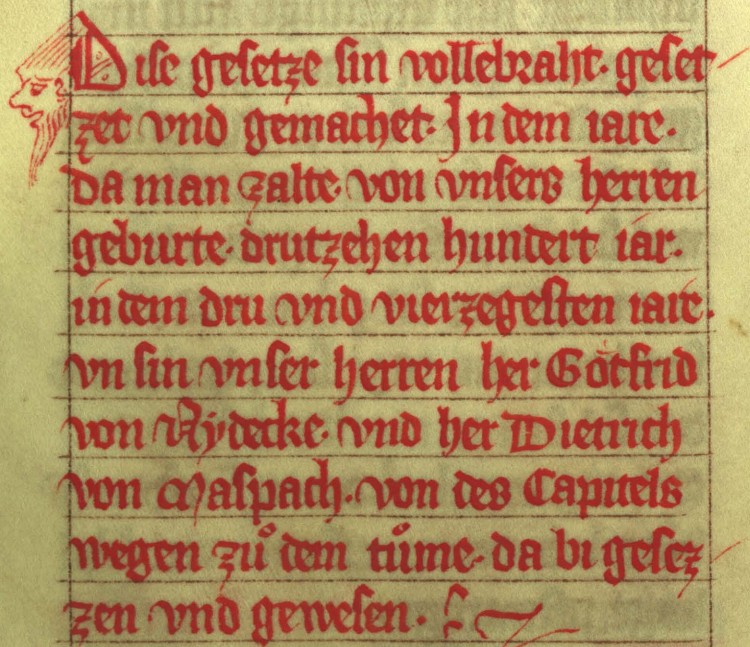 Dise gesetze sin vollebraht. geset
zet vnd gemachet. In dem iare.
da man zalte. von vnsers herren
geburte. drutzehen hundert iar.
in dem dru vnd vierzegesten iare.
vn sin vnser herren her Gotfrid
von Rydecke. vnd her Dietrich
von Maspach. von des Capitels
wegen zuͦ dem tuͦme. da bi gesez
zen vnd gewesen.